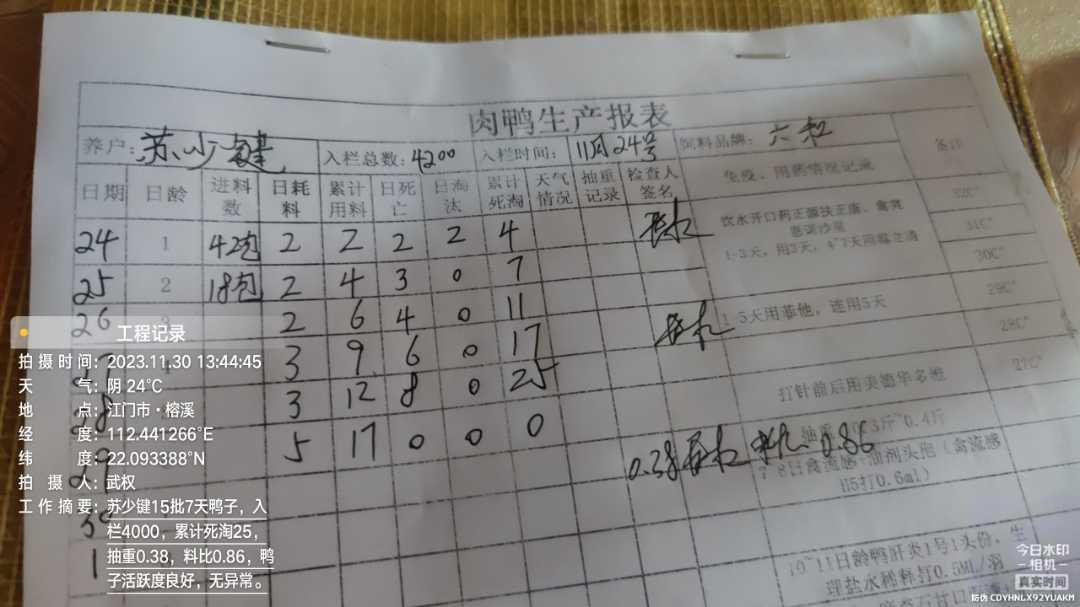 肉鸭生产报表
养户：苏少键 入栏总数：4200 入栏时间：11月24号 饲料品牌：六和
日期 日龄 进料数 日耗料 累计用料 日死亡 日淘汰 累计死淘 天气情况 抽重记录 检查人签名 免疫、用药情况记录 备注
24 1 42包 2 2 2 2 4
25 2 18包 2 4 3 0 7
26 2 6 4 0 11
3 9 6 0 17
28 3 12 8 0 25
29 5 17 0 0 0
30
1
1-3天，用3天，4-7天用霉立清
1-5天用慕他，连用5天
打针前后用美德华多维
0.38 0.86
H5打0.6ml）
10~11日龄鸭肝炎1号1头份，生
理盐水稀释打0.5ML/羽
32C°
31C°
30C°
29C°
28C°
27C°
工程记录
拍摄时间：2023.11.30 13:44:45
天气：阴 24℃
地点：江门市·榕溪
经度：112.441266°E
纬度：22.093388°N
拍摄人：武权
工作摘要：苏少键15批7天鸭子，入
栏4000，累计死淘25，
抽重0.38，料比0.86，鸭
子活跃度良好，无异常。
今日水印
相机
真实时间
防伪 CDYHNLX92YUAKM